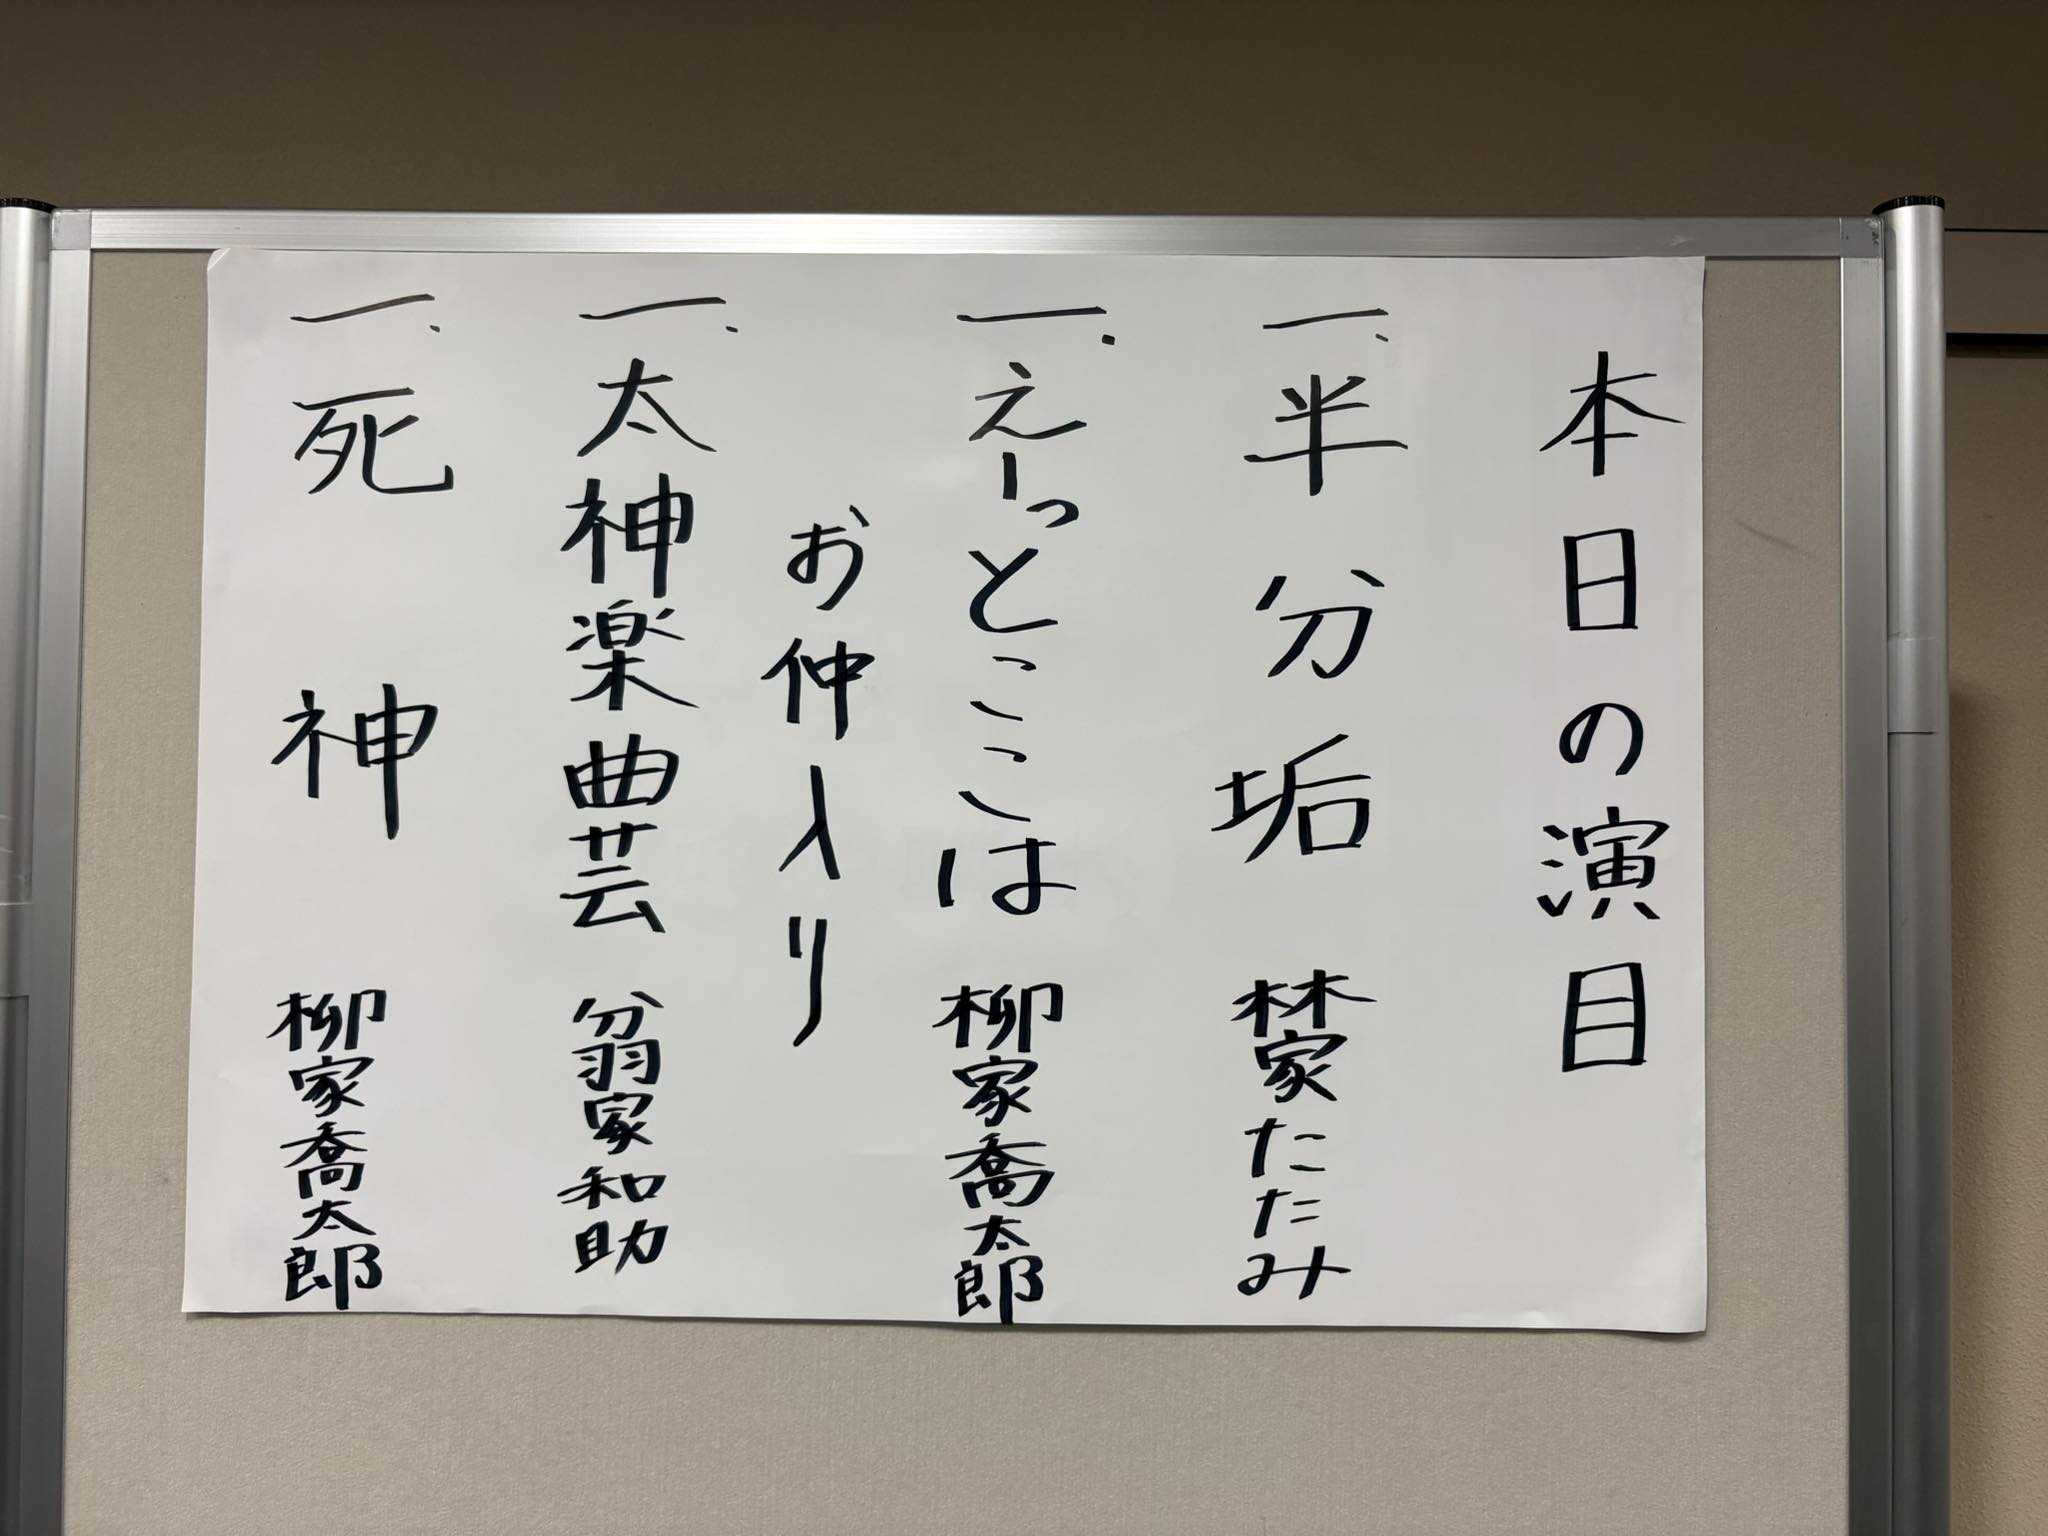 本日の演目
一、半分垢 林家たたみ
一、えーっとここは 柳家喬太郎
お仲入り
一、太神楽曲芸 翁家和助
一、死神 柳家喬太郎